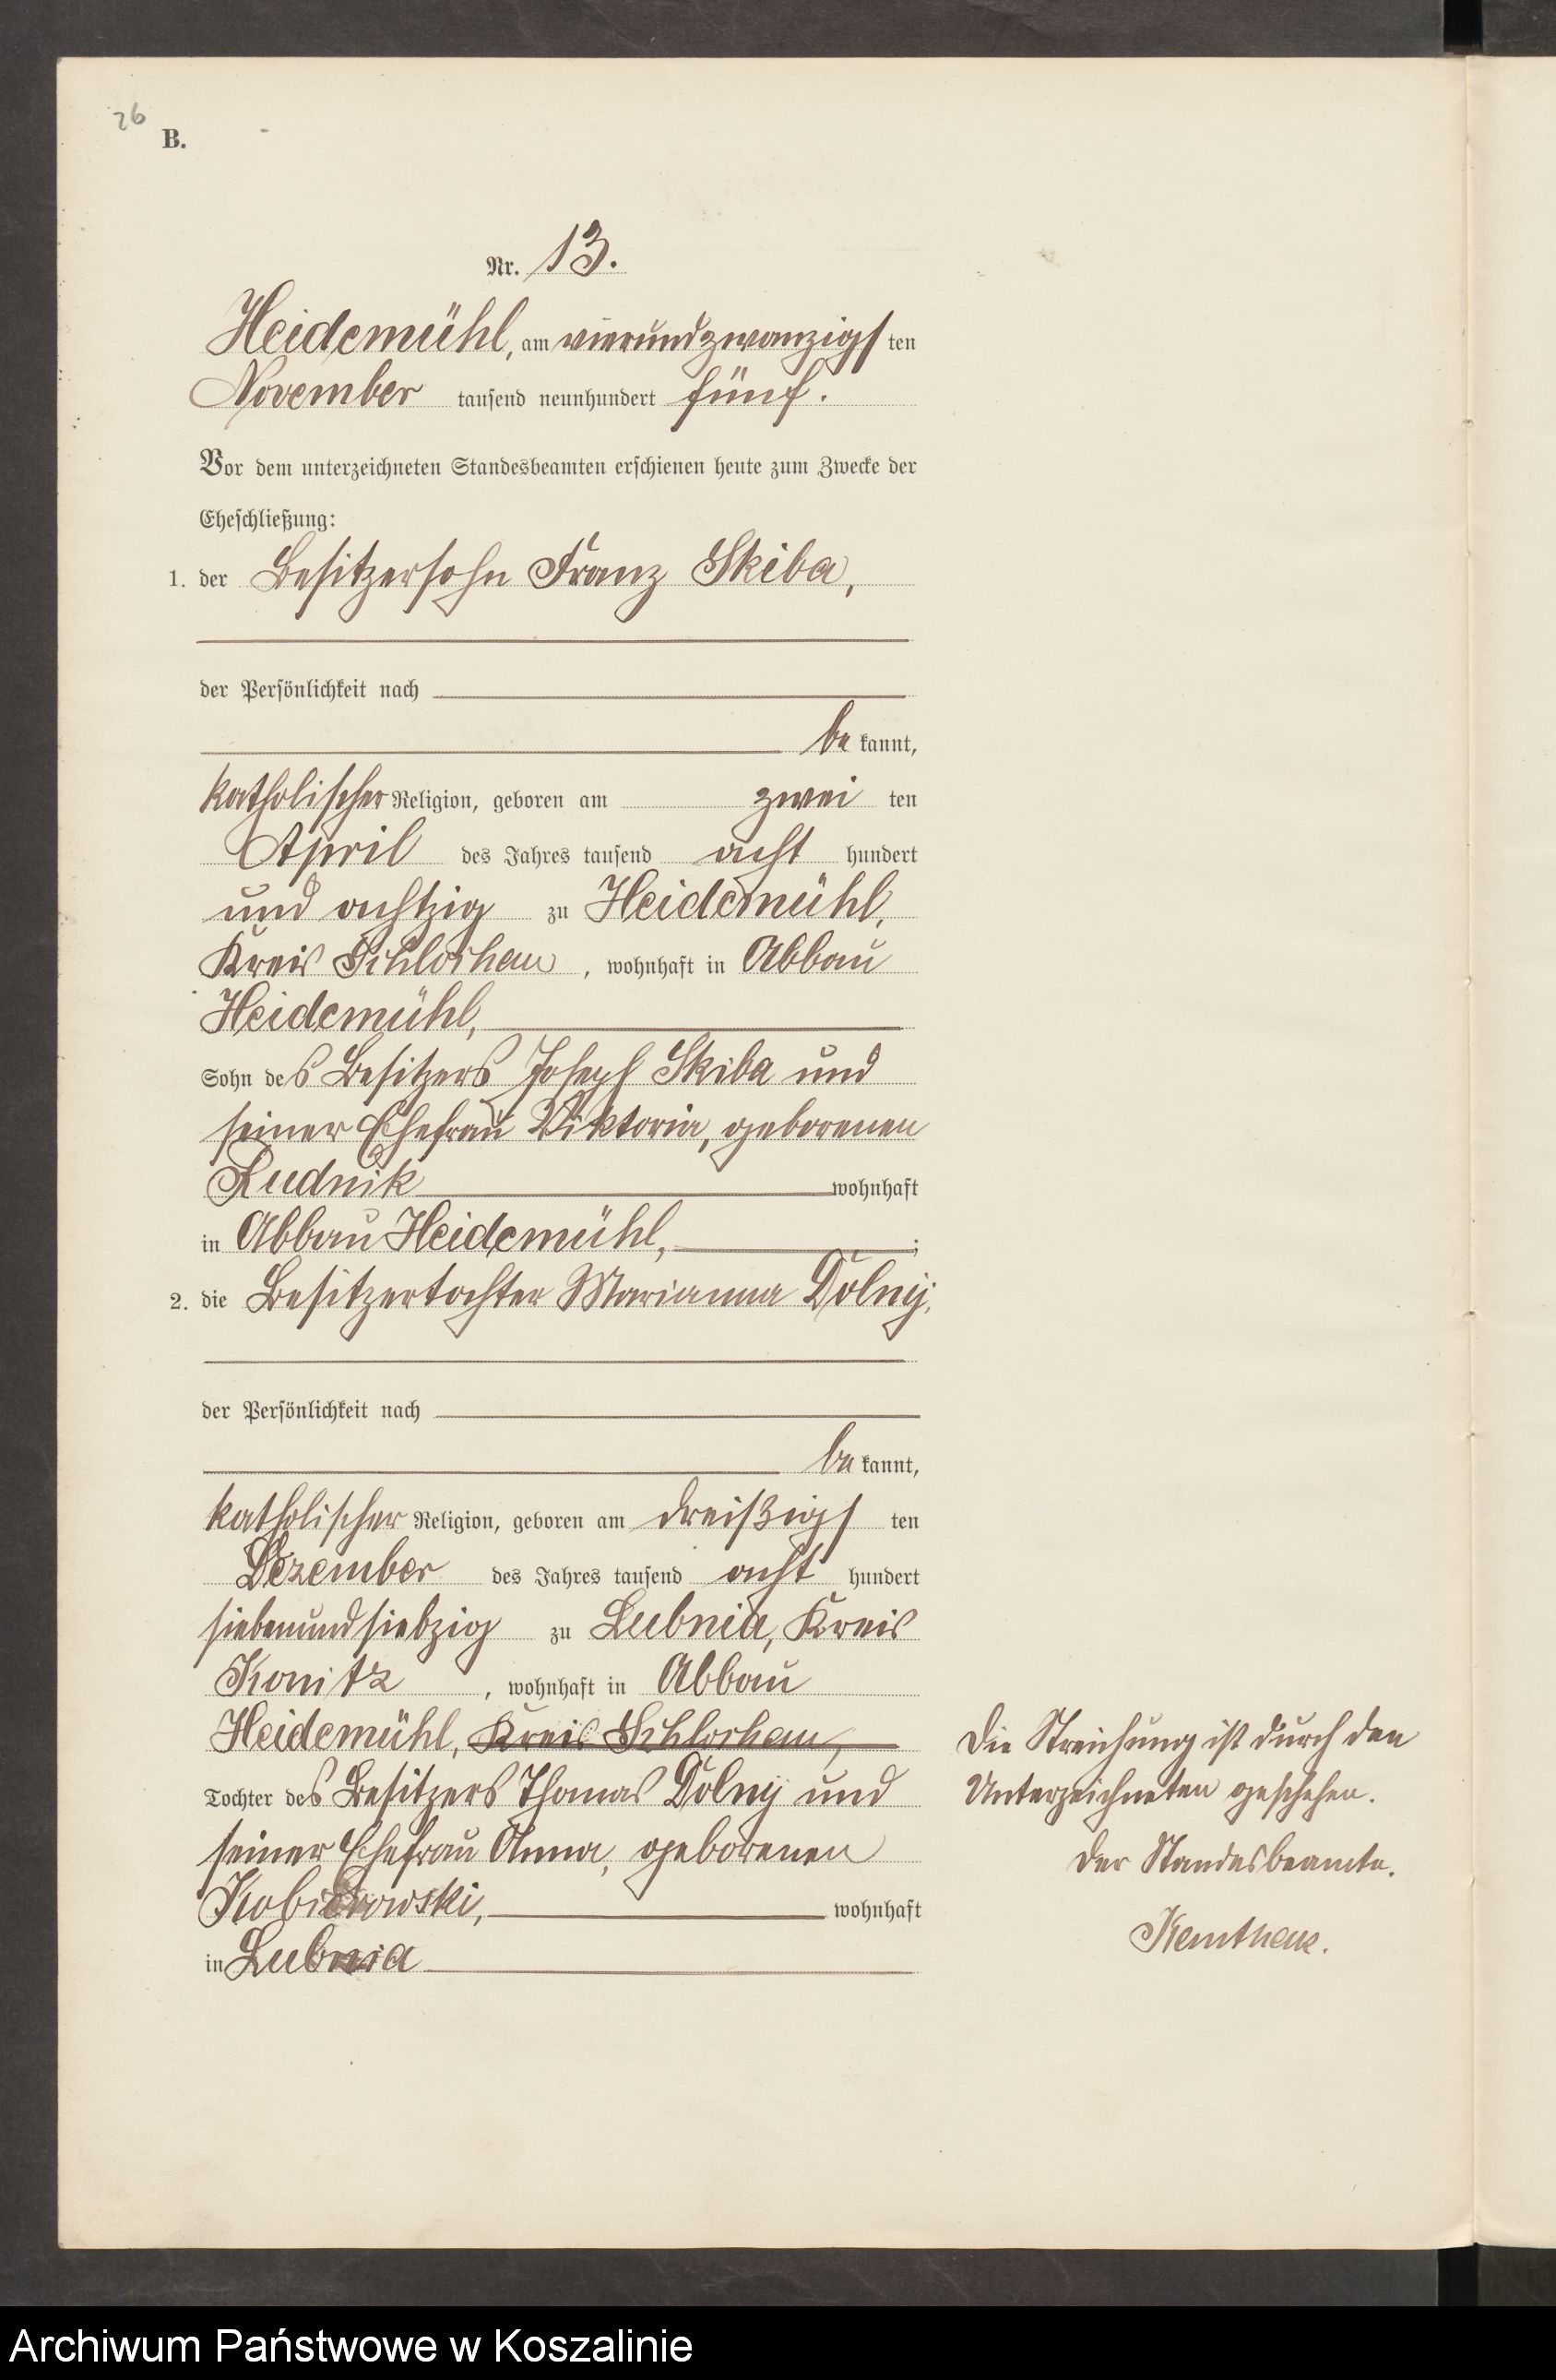 26
B.
Nr. 13.
Heidemühl, am vierundzwanzigsten
November tausend neunhundert fünf.
Vor dem unterzeichneten Standesbeamten erschienen heute zum Zwecke der
Eheschließung:
1. der Besitzersohn Franz Skiba,
der Persönlichkeit nach
bekannt,
katholischer Religion, geboren am zweiten
April des Jahres tausend acht hundert
und achtzig zu Heidemühl,
Kreis Schlochau, wohnhaft in Abbau
Heidemühl,
Sohn des Besitzers Joseph Skiba und
seiner Ehefrau Viktoria, geborenen
Rudnik wohnhaft
in Abbau Heidemühl, ;
2. die Besitzertochter Marianna Dolny,
der Persönlichkeit nach
bekannt,
katholischer Religion, geboren am dreißigsten
Dezember des Jahres tausend acht hundert
siebenundsiebzig zu Lubnia, Kreis
Konitz, wohnhaft in Abbau
Heidemühl, Kreis Schlochau,
Tochter des Besitzers Thomas Dolny und
seiner Ehefrau Anna, geborenen
Kobierowski, wohnhaft
in Lubnia
Die Streichung ist durch den
Unterzeichneten geschehen.
Der Standesbeamte.
Archiwum Państwowe w Koszalinie